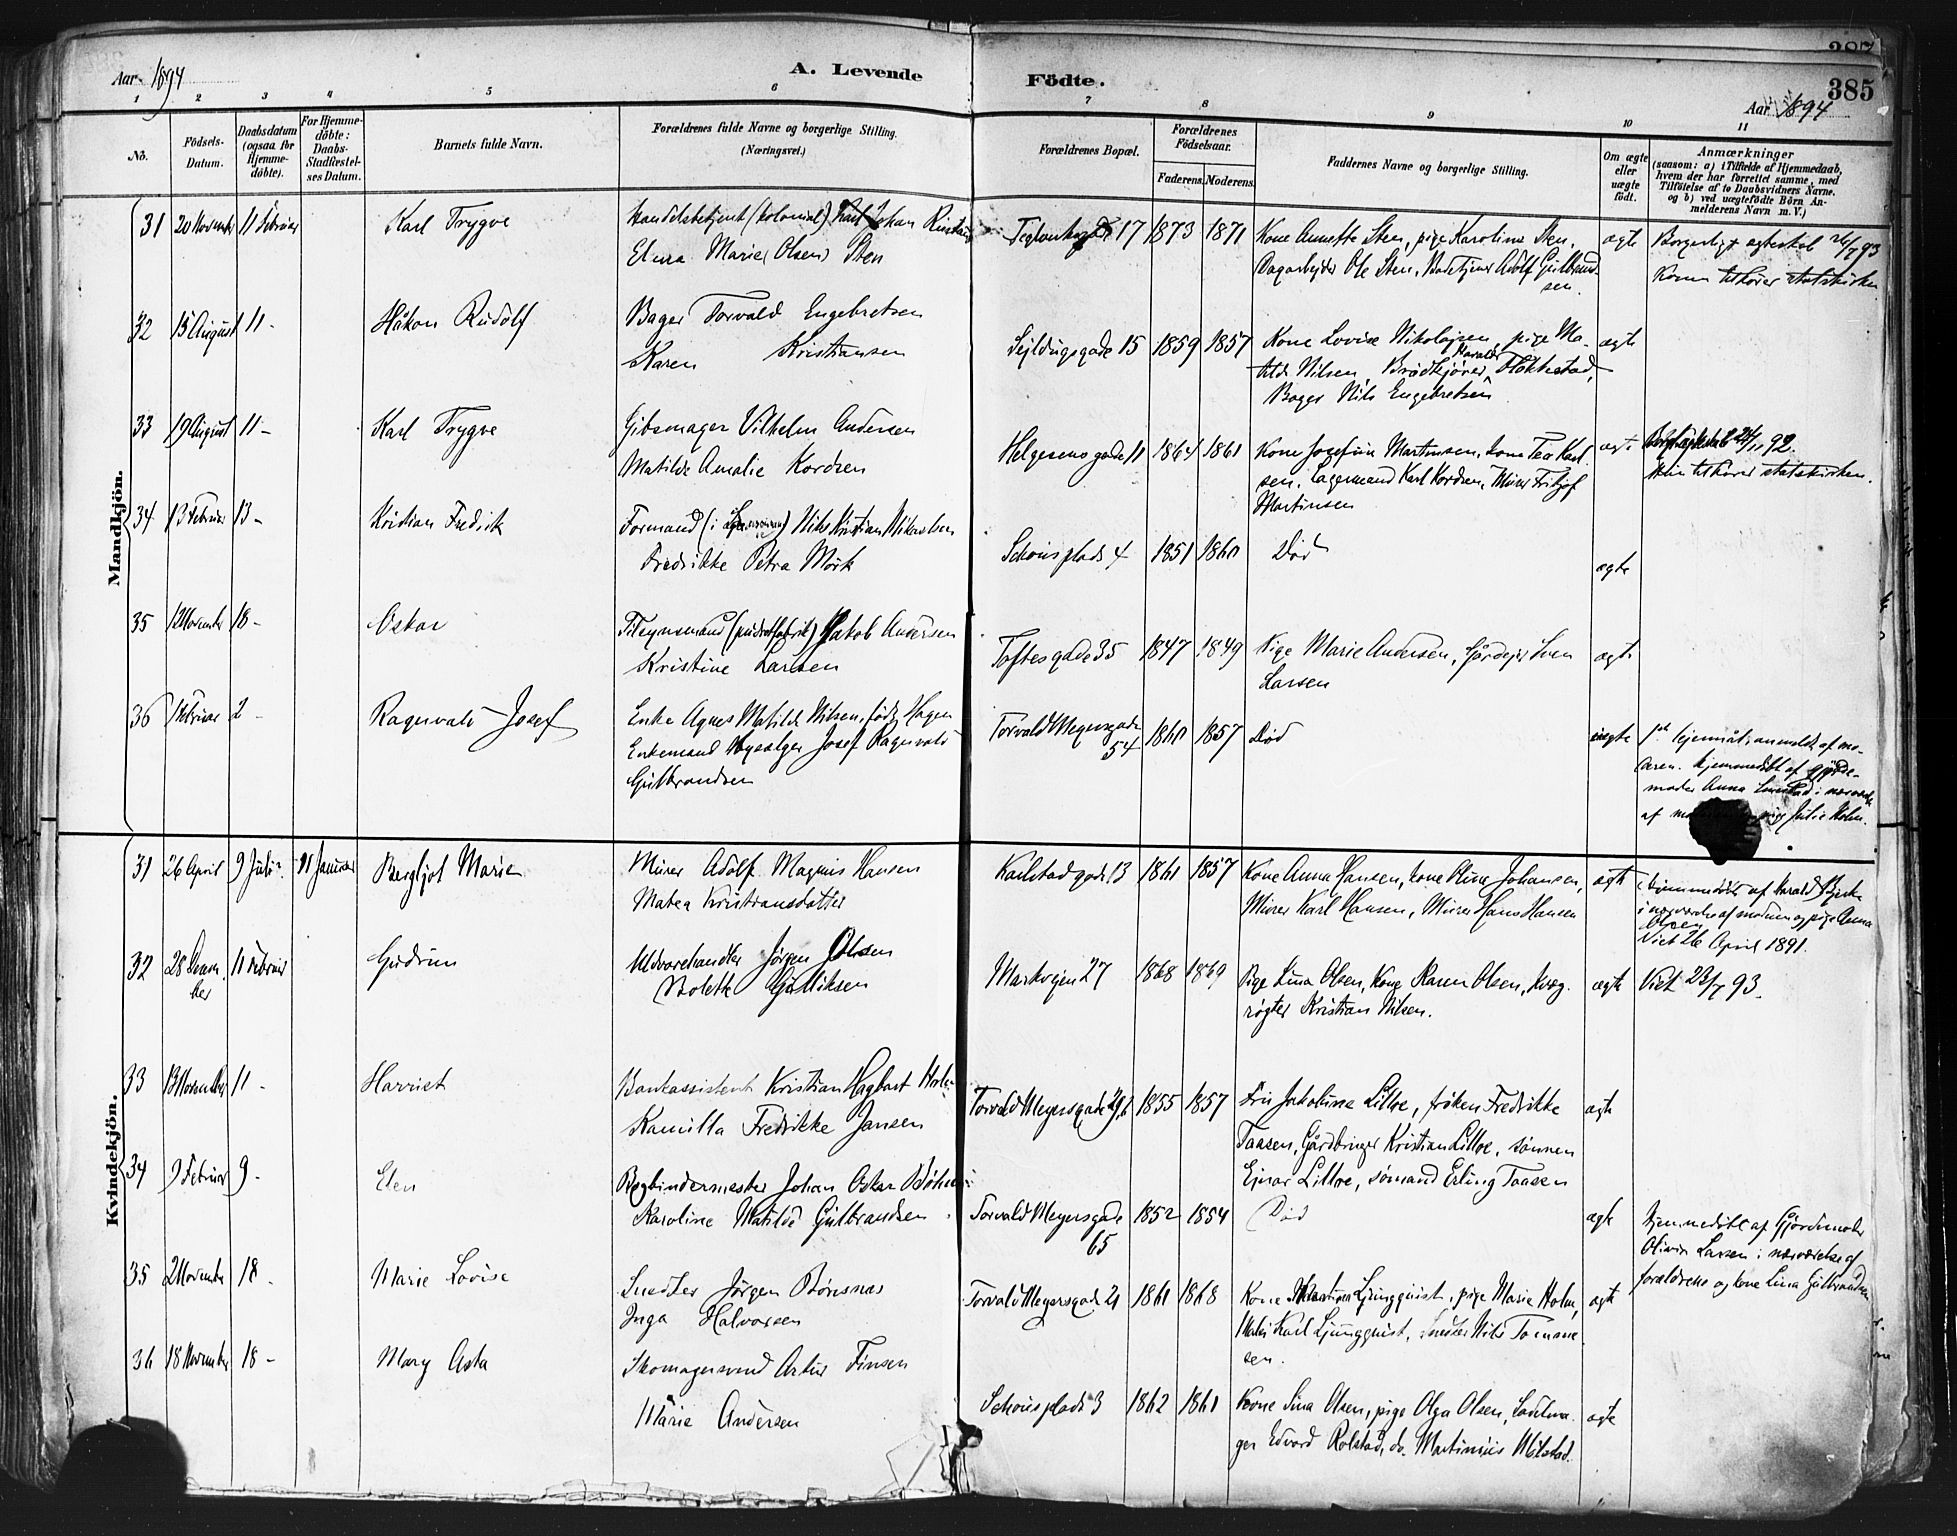 387
385
Aar 1894
A. Levende
Födte.
Aar 1894
1 2 3 4 5 6 7 8 9 10 11
No.
Födsels-
Datum.
Daabsdatum
(ogsaa for
Hjemme-
döbte).
For Hjemme-
döbte:
Daabs-
Stadfæstel-
ses Datum.
Barnets fulde Navn.
Forældrenes fulde Navne og borgerlige Stilling.
(Næringsvei.)
Forældrenes Bopæl.
Forældrenes
Födselsaar.
Faderens. Moderens.
Faddernes Navne og borgerlige Stilling.
Om ægte
eller
uægte
födt.
Anmærkninger
(saasom: a) i Tilfælde af Hjemmedaab,
hvem der har forrettet samme, med
Tilföielse af to Daabsvidners Navne.
og b) ved uægtefödte Börn An-
melderens Navn m. V.)
Mandkjön.
31 20 November 11 Februar Karl Trygve
Handelsbetjent (kolonial) Karl Johan
Marie (Olsen) Sten
17 1873 1871
Kone Annette Sten, pige Karoline Sten,
Dagarbejder Ole Sten, Adolf Gulbrand-
sen.
ægte
Borgerligt ægteskab 26/7 93
Konen tilhører statskirken
32 15 August 11 - Håkon Rudolf
Bager Torvald Engebretsen
Karen Kristiansen
Sejldugsgade 15 1859 1857
Kone Lovise Nikolajsen, pige Ma-
tilde Nilsen, Brødkjører Harald
Bager Nils Engebretsen
ægte
33 19 August 11 - Karl Trygve
Gibsmager Vilhelm Andersen
Matilde Amalie Kordsen
Helgesens gade 11 1864 1861
Kone Josefine Martinsen, kone Tea Karl-
sen, Lagermand Karl Kordsen, Murer Fritjof
Martinsen
ægte
92.
tilhører statskirken.
34 13 Februar 13 - Kristian Fredrik
Formand (i ) Nils Kristian Mikaelsen
Fredrikke Petra Mörk
Schous plads 4 1851 1860 Död
ægte
35 12 November 18 - Oskar
Jakob Andersen
Kristine Larsen
Toftes gade 35 1847 1849
Pige Marie Andersen, Gårdejer Sven
Larsen
ægte
36 1 Februar 2 - Ragnvald Josef
Enke Agnes Matilde Nilsen, født Hagen
Enkemand Josef Ragnvald
Gulbrandsen
Torvald Meyersgade
54 1860 1857 Död
uægte
1ste lejermål; anmeldt af mo-
deren. hjemmedöbt af gjorde-
moder Anna i nærværelse
af pige Julie Holm.
Kvindekjön.
31 26 April 9 Juli 11 Januar Bergljot Marie
Murer Adolf Magnus Hansen
Matea Kristiansdatter
Karlstadgade 13 1861 1857
Kone Anna Hansen, kone Oline Johansen,
Murer Karl Hansen, Murer Hans Hansen
ægte
hjemmedöbt af Harald Bjerke
i nærværelse af moderen og pige Anna
Olsen
Viet 26 April 1891.
32 28 Decem-
ber
11 Februar Gudrun
Uldvarehandler Jørgen Olsen
Bolette Gulliksen
Markvejen 27 1868 1869
Pige Lina Olsen, Kone Karen Olsen, Kvæg-
røgter Kristian Nilsen.
ægte
Viet 23/7 93.
33 13 November 11 - Harriet
Bankassistent Kristian Hagbart
Kamilla Fredrikke Jansen
Torvald Meyersgade 1855 1857
Fru Jakobine Lilloe, frøken Fredrikke
Taasen, Gårdbruger Kristian Lilloe, sønnen
Ejnar Lilloe, sømand Erling Taasen
ægte
34 9 Februar 9 - Elen
Bogbindermester Johan Oskar
Karoline Matilde Gulbrandsen
Torvald Meyersgade
65 1852 1854 Död
ægte
hjemmedöbt af Gjordemoder
Olivia Larsen i nærværelse af
forældrene og kone Lina Gulbrandsen
35 2 November 18 - Marie Lovise
Snedker Jørgen
Inga Halvorsen
Torvald Meyersgade 21 1861 1868
Kone Ljungquist, pige Marie Holm,
Maler Karl Ljungquist, Snedker Nils Tomme-
sen.
ægte
36 18 November 18 - Mary Asta
Skomagersvend Artur Finsen
Marie Andersen
Schous plads 3 1862 1861
Kone Lina Olsen, pige Olga Olsen, Sadelma-
ger Edvard Rolstad, do. Martinius Rolstad.
ægte